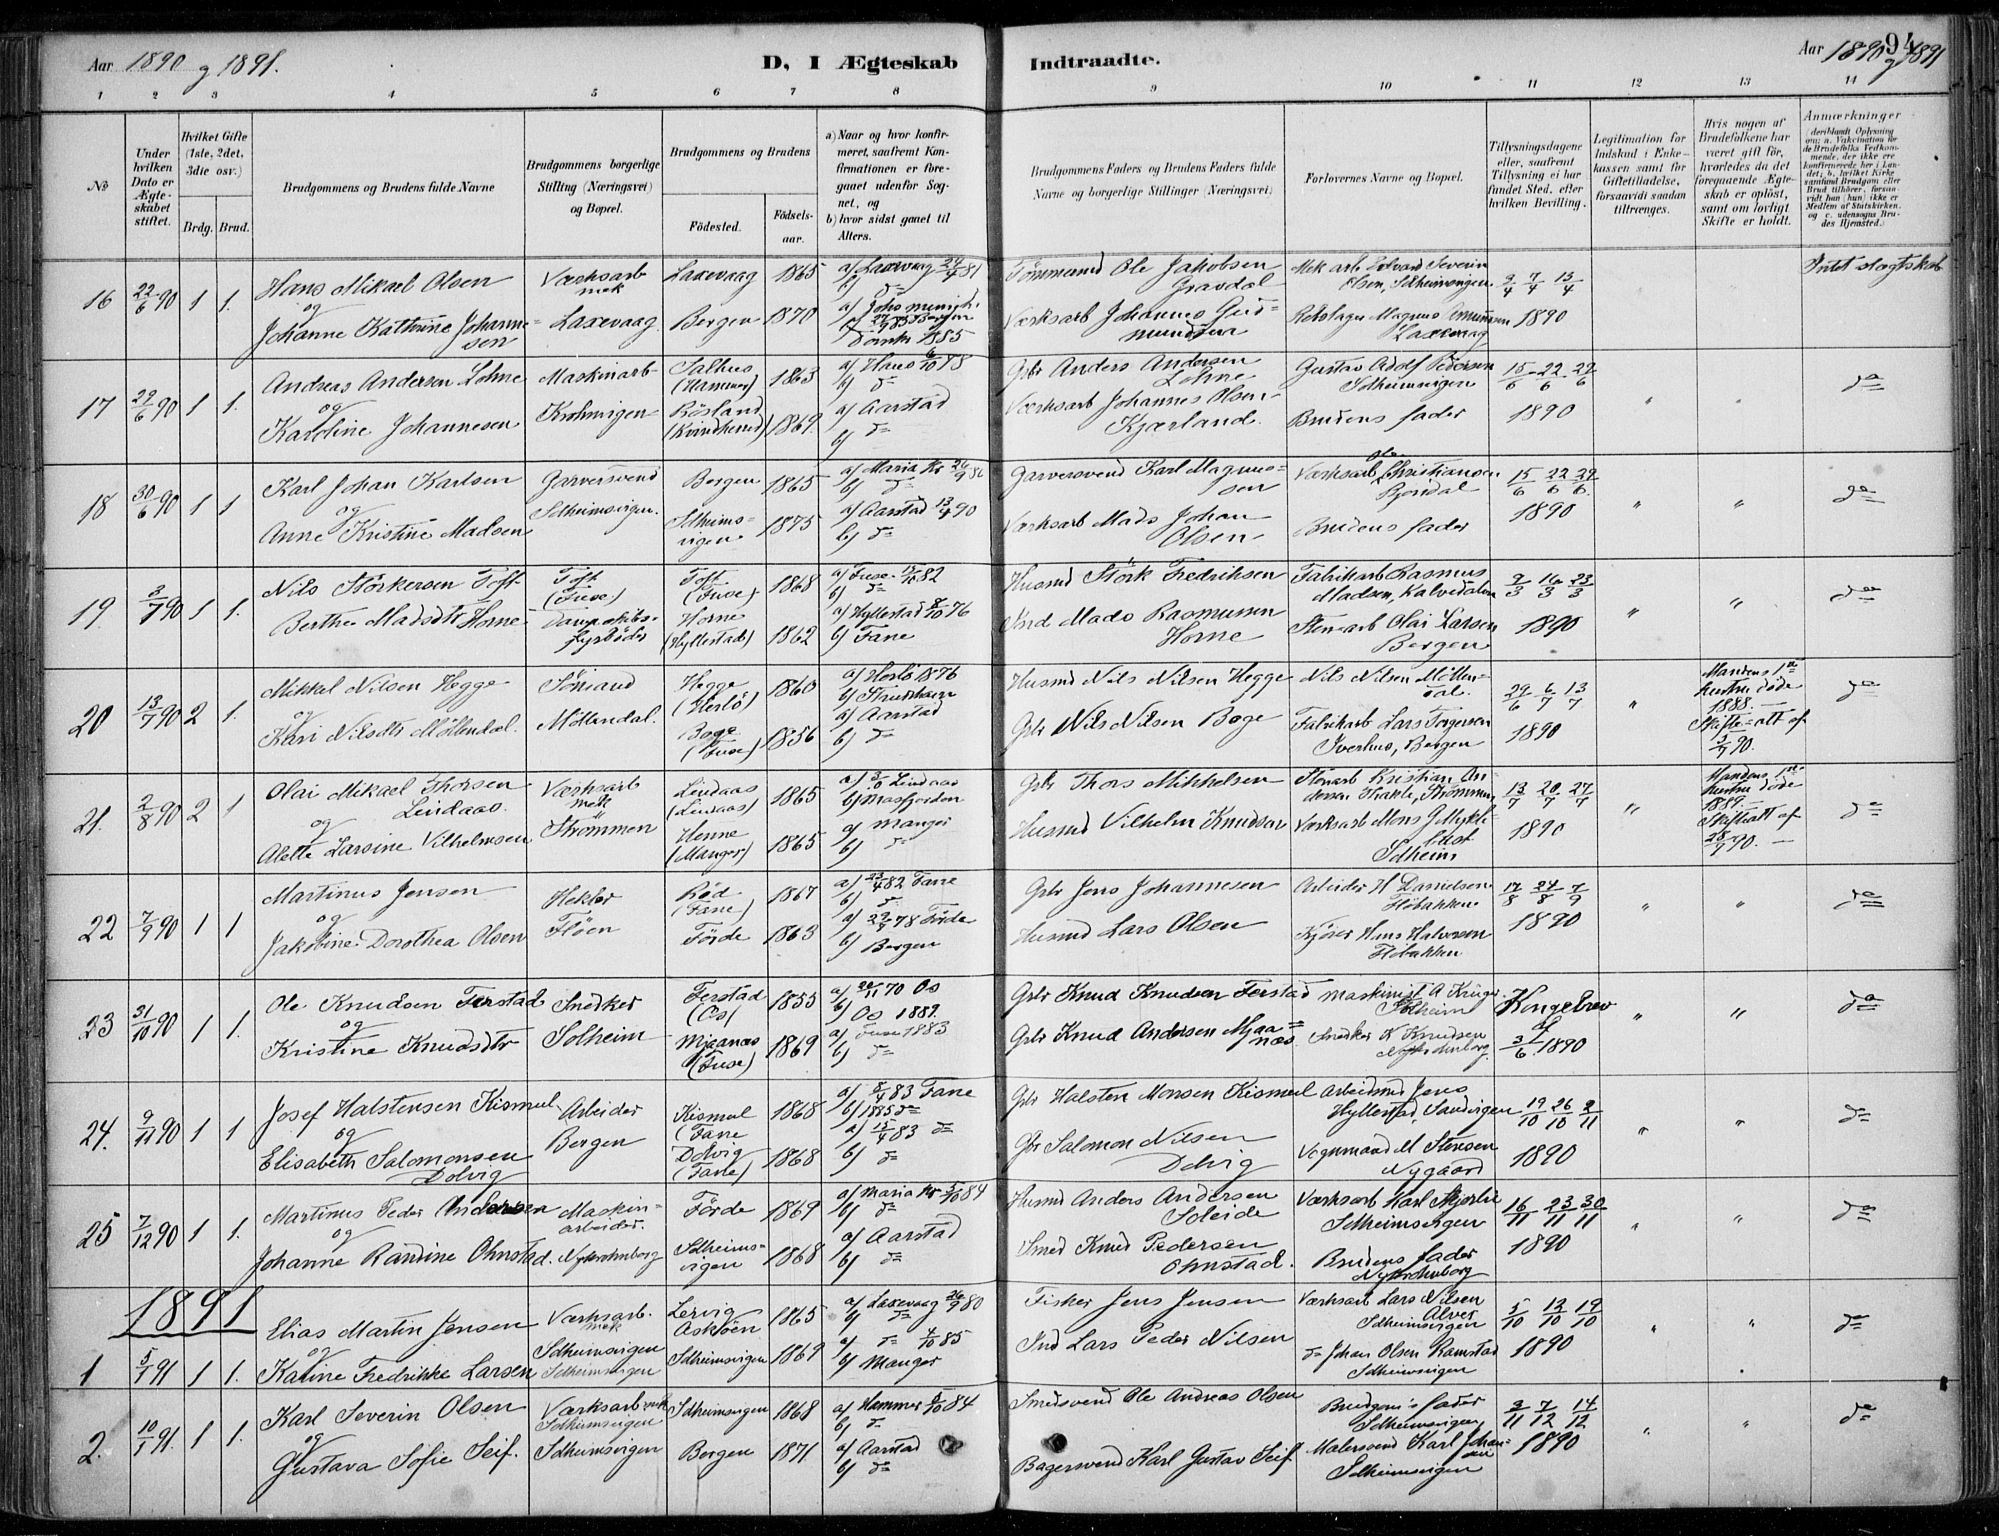 Aar 1890 og 1891.
D, I Ægteskab
Indtraadte.
Aar 1890 og 1891
94
1 2 3 4 5 6 7 8 9 10 11 12 13 14
No
Under hvilken Dato er Ægteskabet stiftet.
Hvilket Gifte (1ste, 2det, 3die osv.)
Brdg. Brud.
Brudgommens og Brudens fulde Navne
Brudgommens borgerlige Stilling (Næringsvei) og Bopæl.
Brudgommens og Brudens
Fødested.
Fødselsaar.
a) Naar og hvor konfirmeret, saafremt Konfirmationen er foregaaet udenfor Sognet, og
b) hvor sidst gaaet til Alters.
Brudgommens Faders og Brudens Faders fulde Navne og borgerlige Stillinger (Næringsvei)
Forlovernes Navne og Bopæl.
Tillysningsdagene eller, saafremt Tillysning ei har fundet Sted, efter hvilken Bevilling.
Legitimation for Indskud i Enkekassen samt for Giftetilladelse, forsaavidt saadan tiltrænges.
Hvis nogen af Brudefolkene har været gift før, hvorledes da det foregaaende Ægteskab er opløst, samt om lovligt Skifte er holdt.
Anmærkninger
16 22/6 90 1 1. Hans Mikael Olsen Værksarb mek Laxevaag 1865 a) Laxevaag 24/4 81 b) do
Tømmermd Ole Jakobsen Gravdal
Olsen, Solheimsvigen 7/4 13/4 Intet slægtskab
og
Johanne Kathrine Johannesen Laxevaag Bergen 1870
Værksarb Johannes Gudmundsen
Magnus Laxevaag 1890
17 29/6 90 1 1. Andreas Andersen Lohne Maskinarb Salhus (Hammer) 1863 a) Haus 6/10 78 b) do
Gbr Anders Andersen Lohne
Gustav Adolf Pedersen Solheimsvigen 15/6 22/6 29/6 " " do
og
Karoline Johannesen Krohnvigen Røsland (Kvindherred) 1869 a) Aarstad b) do
Værksarb Johannes Olsen Kjærland.
Brudens fader 1890
18 30/6 90 1 1 Karl Johan Karlsen Garversvend Bergen 1865 a) Maria K b) do
Garversvend Karl Magnussen
Værksarb Ole Christiansen 15/6 22/6 29/6 " " do
og
Anne Kristine Madsen Solheimsvigen. Solheimsvigen 1875 a) Aarstad 13/4 90 b) do
Værksarb Mads Johan Olsen
Brudens fader 1890
19. 3/7 90 1 1. Nils Størkersen Toft Toft (Fuse) Toft (Fuse) 1868 a) Fuse 82 b) do
Husmd Størk Fredriksen
Fabrikarb Rasmus Madsen, Kalvedalen 9/3 16/3 23/3 " " do
Berthe Madsdtr Horne Dampskibsfyrbøder Horne (Hyllestad) 1862 a) Hyllestad 8/10 76 b) Fane
Ind Mads Rasmussen Horne
Stenarb Olai Larsen Bergen 1890
20 13/7 90 2 1. Mikkel Nilsen Hegge Sømand Hegge (Herlö) 1860 a) Herlö 1876 b)
Husmd Nils Nilsen Hegge
Nils Nilsen Møllendal. 29/6 6/7 13/7 "
Mandens 1ste hustru døde 1888. Skifteatt af 5/7 90.
do
og
Kari Nilsdtr Møllendal. Møllendal. Boge (Fuse) 1856 a) Aarstad b) do
Gbr Nils Nilsen Boge
Fabrikarb Lars Torgersen Iverhus, Bergen 1890
21. 2/8 90 2 1 Olai Mikael Thorsen Lindaas. Værksarb mek Lindaas (Lindaas) 1865 a) Lindaas b) Masfjorden
Gbr Thors Mikkelsen
Stenarb Kristian Andersen Strømmen 13/7 20/7 27/7 "
Mandens 1ste hustru døde 1889. Skifteatt af 90.
do
og
Alette Larsine Vilhelmsen Strømmen Henne (Manger) 1865 a) Manger b) do
Husmd Vilhelm Knudsen
Værksarb Mons J Myklebust Solheim 1890
22 7/9 90 1 1 Martinus Jensen Hekler Rød (Fane) 1867 a) 23/4 82 Fane b) do
Gbr Jens Johannesen
Arbeider H Danielsen Fløbakken 17/8 24/8 7/9 " " do
og
Jakobine Dorothea Olsen Fløen Førde 1863 a) 29/9 78 Førde b) Bergen
Husmd Lars Olsen
Kjører Hans Halvorsen Fløbakken 1890
23 31/10 90 1 1. Ole Knudsen Ferstad Snedker Ferstad (Os) 1855 a) 20/11 70 Os b) Os 1889.
Gbr Knud Knudsen Ferstad
Maskinist A Krüger Solheim Kongebrev af " " do
og
Kristine Knudsdtr Solheim Mjaanæs (Fuse) 1869 a) Fuse 1883 b) do
Gbr Knud Andersen Mjaanæs
Snedker K Knudsen Nykrohnborg 3/6 1890
24. 9/11 90 1 1 Josef Halstensen Kismul Arbeider Kismul (Fane 1868 a) 8/4 83 Fane b) 1885 do
Gbr Halsten Monsen Kismul
Arbeidsmd Jens Hyllestad, Sandvigen 19/10 26/10 2/11 " " do
og
Elisabeth Salomonsen Dolvig Bergen Dolvig (Fane) 1868 a) 15/4 83 do b) do
Gbr Salomon Nilsen Dolvig
Vognmand M Stensen Nygaard 1890
25 7/12 90 1 1. Martinus Peder Andersen Maskinarbeider. Førde 1869 a) Maria K 5/10 84 b) do
Husmd Anders Andersen Soleide
Værksarb Karl Solheimsvigen 16/11 23/11 30/11 " " do
og
Johanne Randine Ohnstad. Nykrohnborg Solheimsvigen 1868 a) Aarstad b) do
Smed Knud Pedersen Ohnstad.
Brudens fader Nykrohnborg 1890
1891
1 5/1 91 1 1. Elias Martin Jensen Værksarb. mek Solheimsvigen Lervig Askøen 1865 a) Laxevaag 26/9 80 b) do
Fisker Jens Jensen
Værksarb Lars Nilsen Alver Solheimsvigen 5/10 12/10 19/10 " " do
og
Katine Fredrikke Larsen Solheimsvigen Solheimsvigen 1869 a) do 4/10 85 b) Manger
Ind Lars Peder Nilsen
do Johan Olsen Ramstad Solheimsvigen 1890
2. 10/1 91. 1 1. Karl Severin Olsen Værksarb mek Solheimsvigen Solheimsvigen 1868 a) Hammer 5/10 84 b) do
Smedsvend Ole Andreas Olsen
Brudgoms fader Solheimsvigen 7/12 14/12 " " do
og
Gustava Sofie Seif. Solheimsvigen Bergen 1871 a) Aarstad b) do
Bagersvend Karl Gustav Seif
Malersvend Karl Johansen Solheimsvigen 1890